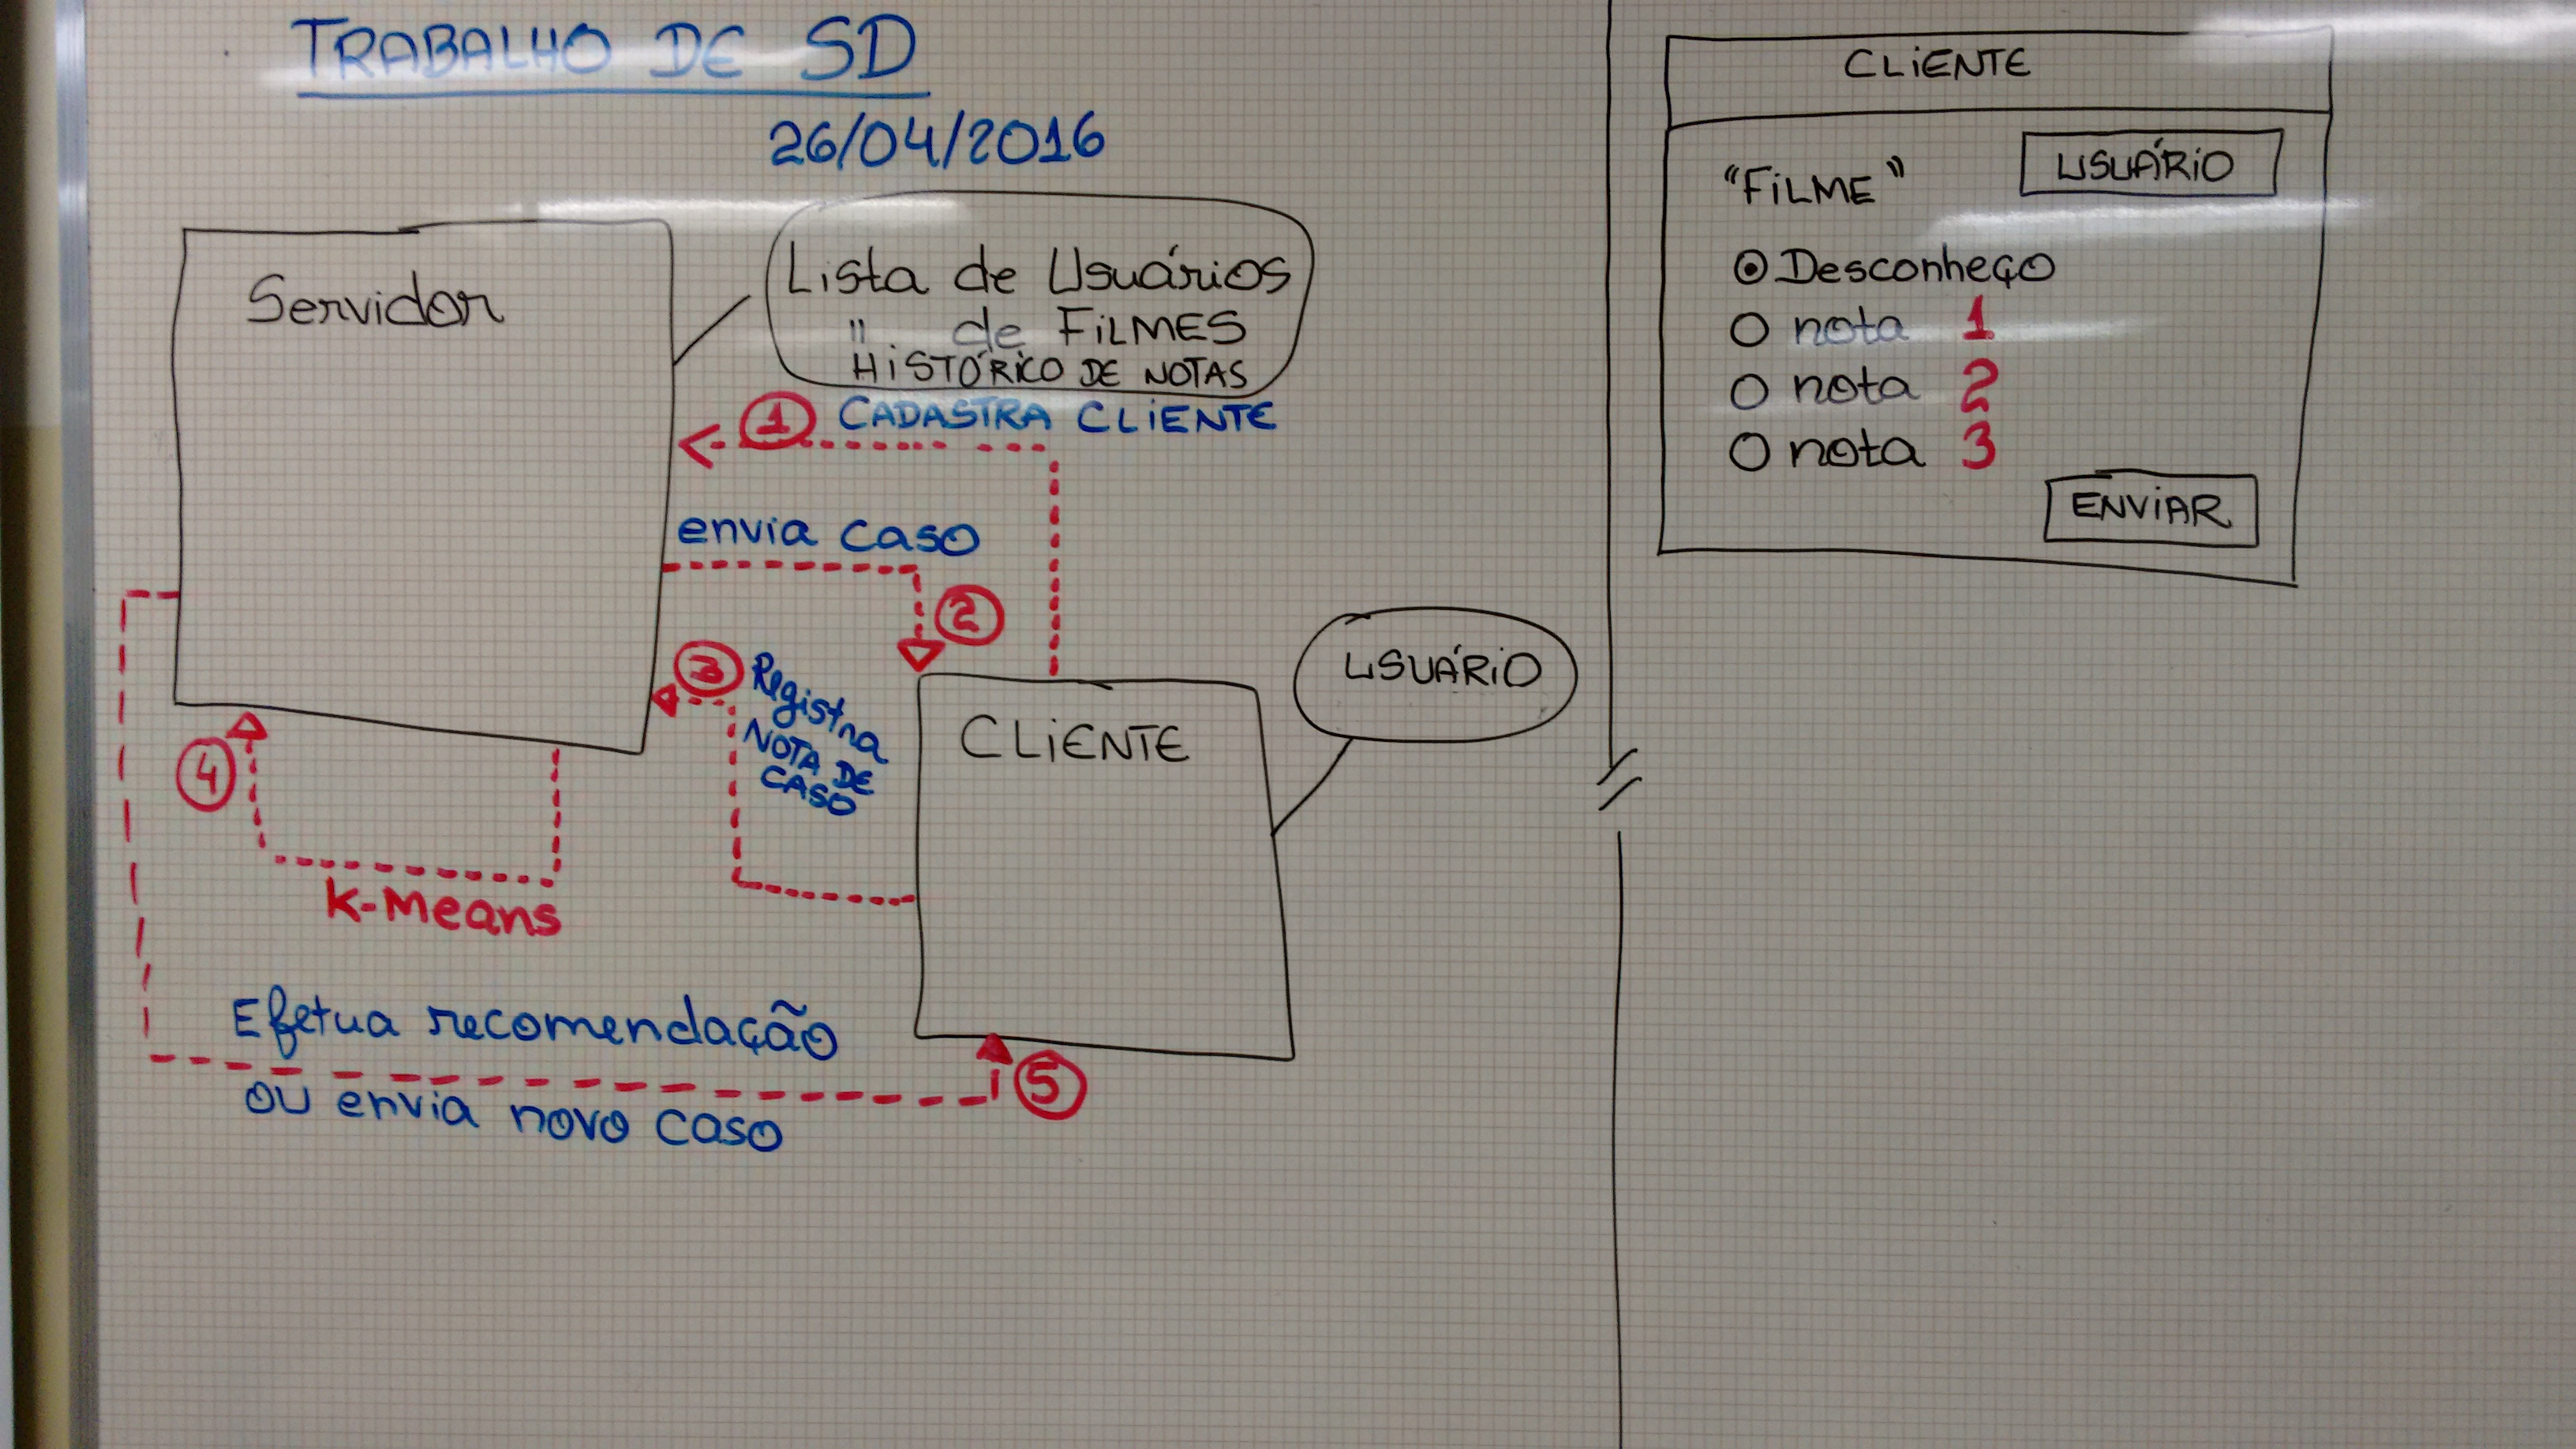 TRABALHO DE SD
26/04/2016
Servidor
Lista de Usuários
" de FiLMES
HiSTÓRiCO DE NOTAS
1 CADASTRA CLiENTE
envia caso
2
3 Registra
NOTA DE
CASO
CLiENTE
USUÁRiO
4
K-Means
Efetua recomendação
ou envia novo caso
5
CLiENTE
"FiLME"
USUÁRiO
Desconheço
nota 1
nota 2
nota 3
ENViAR